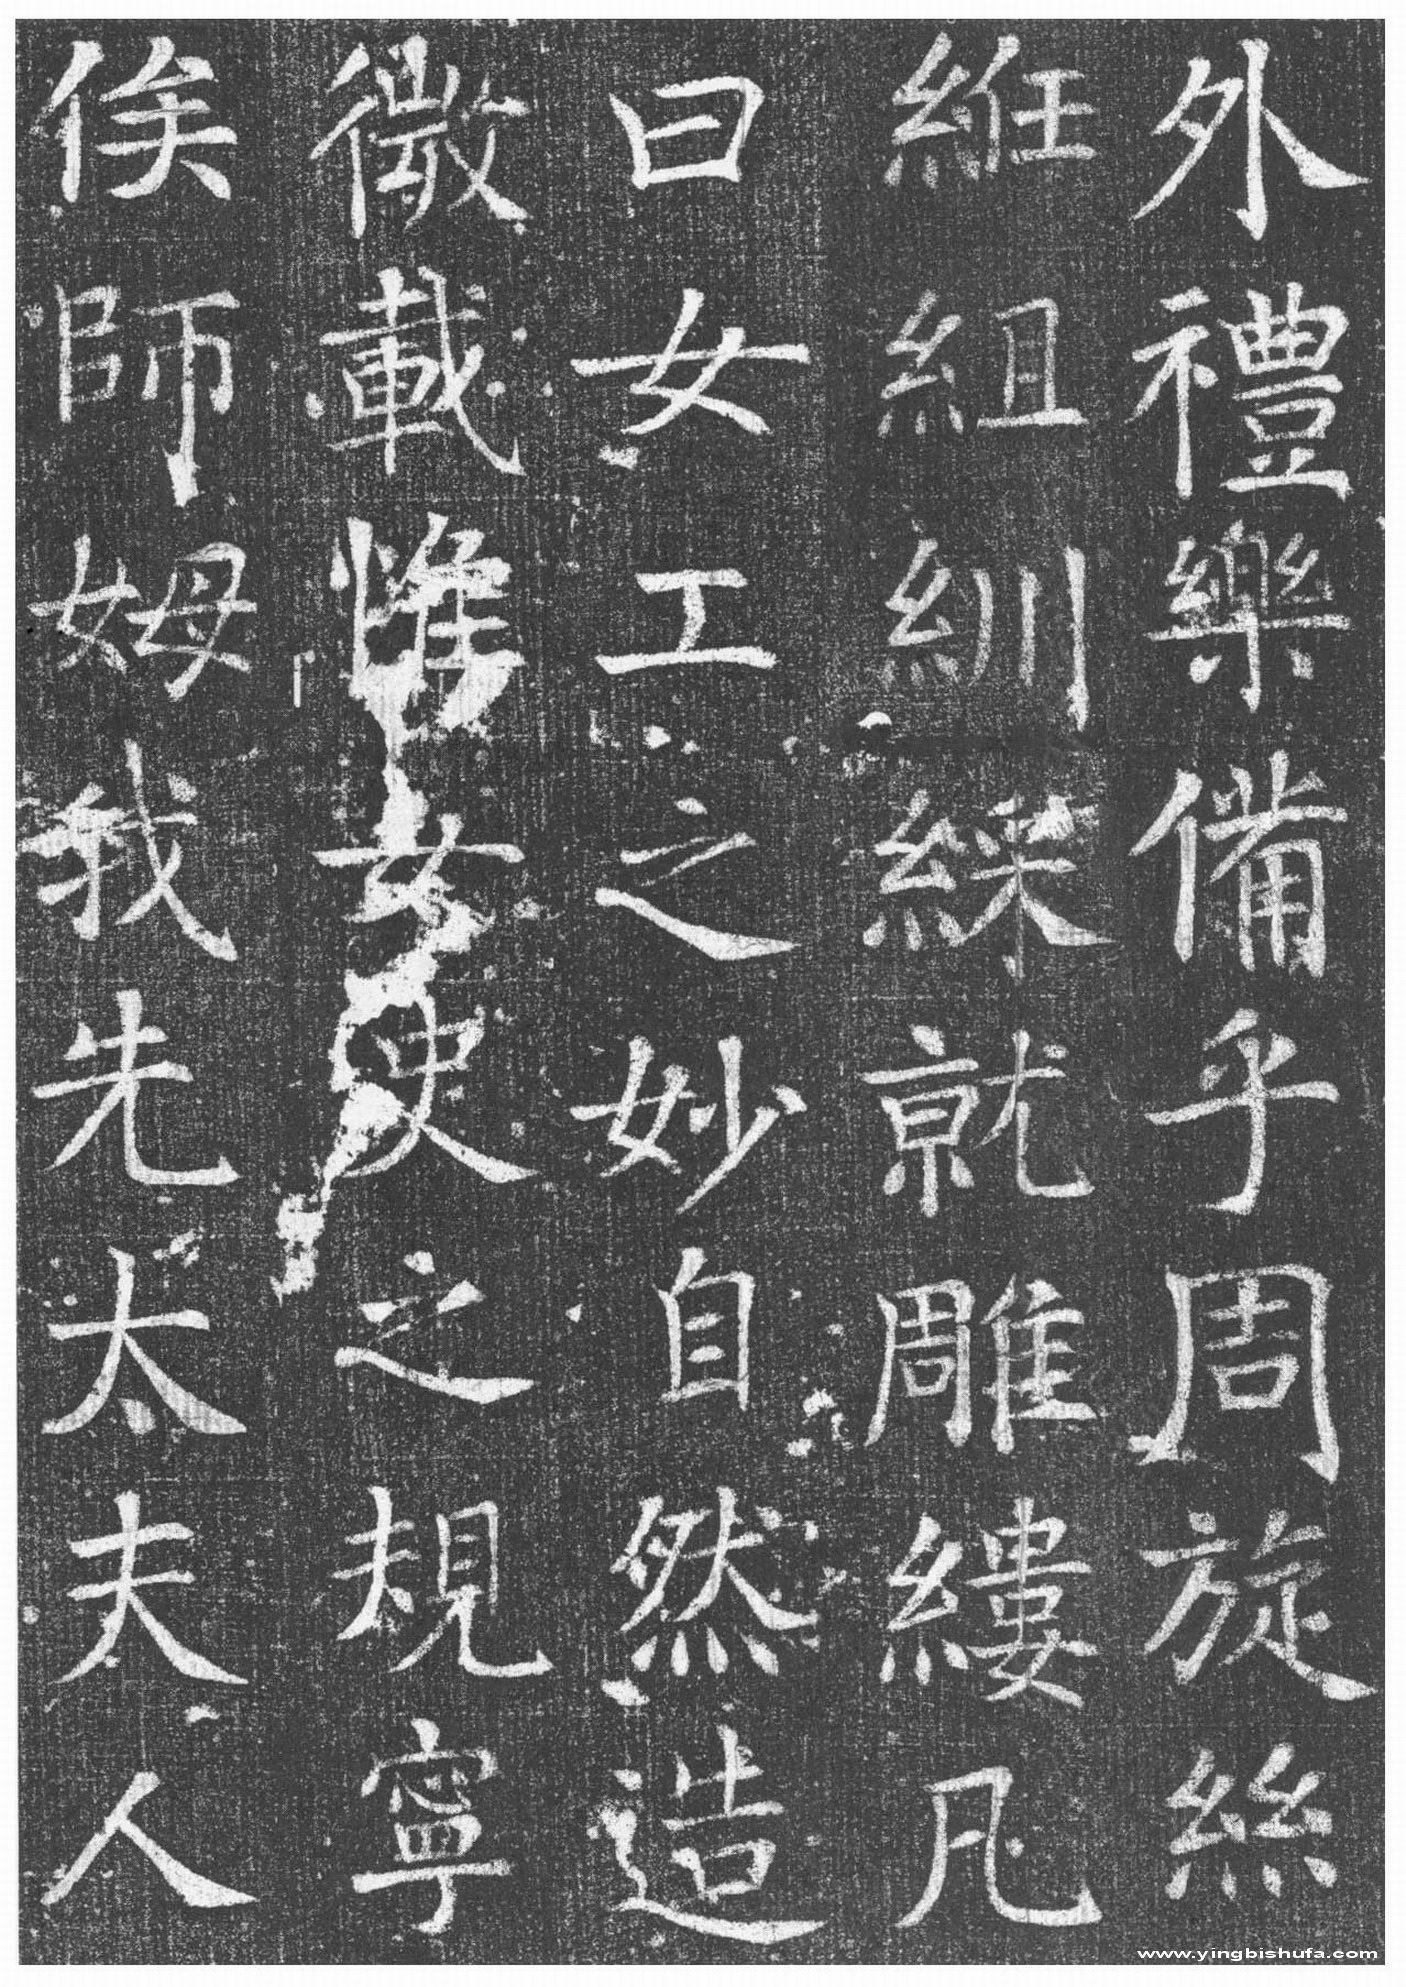 外禮樂備乎周旋絲
絍組紃綵就雕縷凡
曰女工之妙自然造
微載惟女史之規寧
俟師姆我先太夫人
www.yingbishufa.com